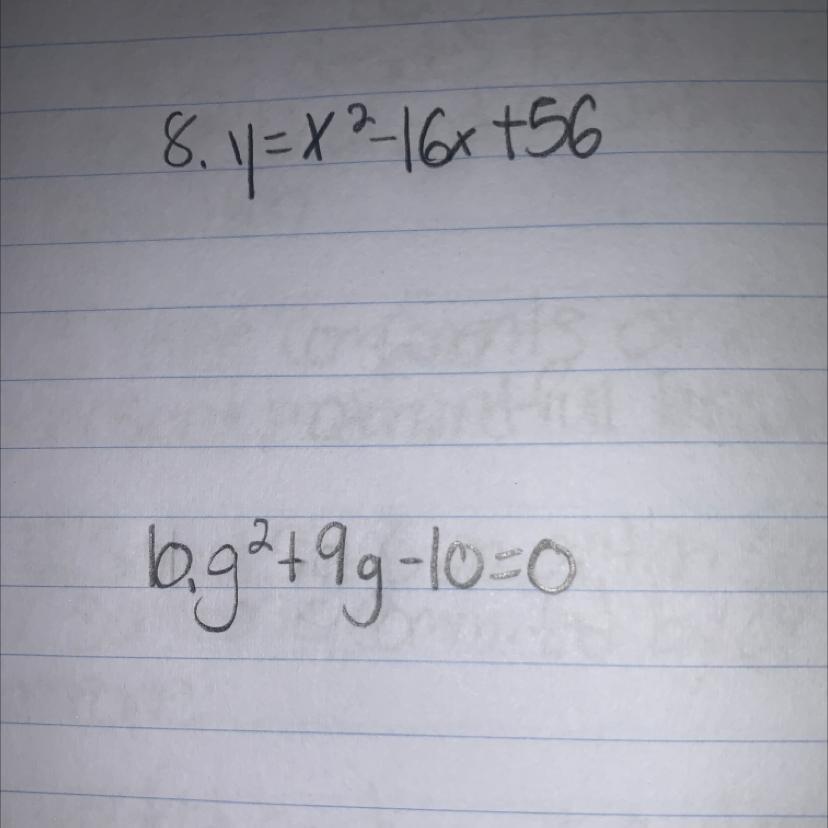 8. y=x²-16x+56
b. g²+9g-10=0